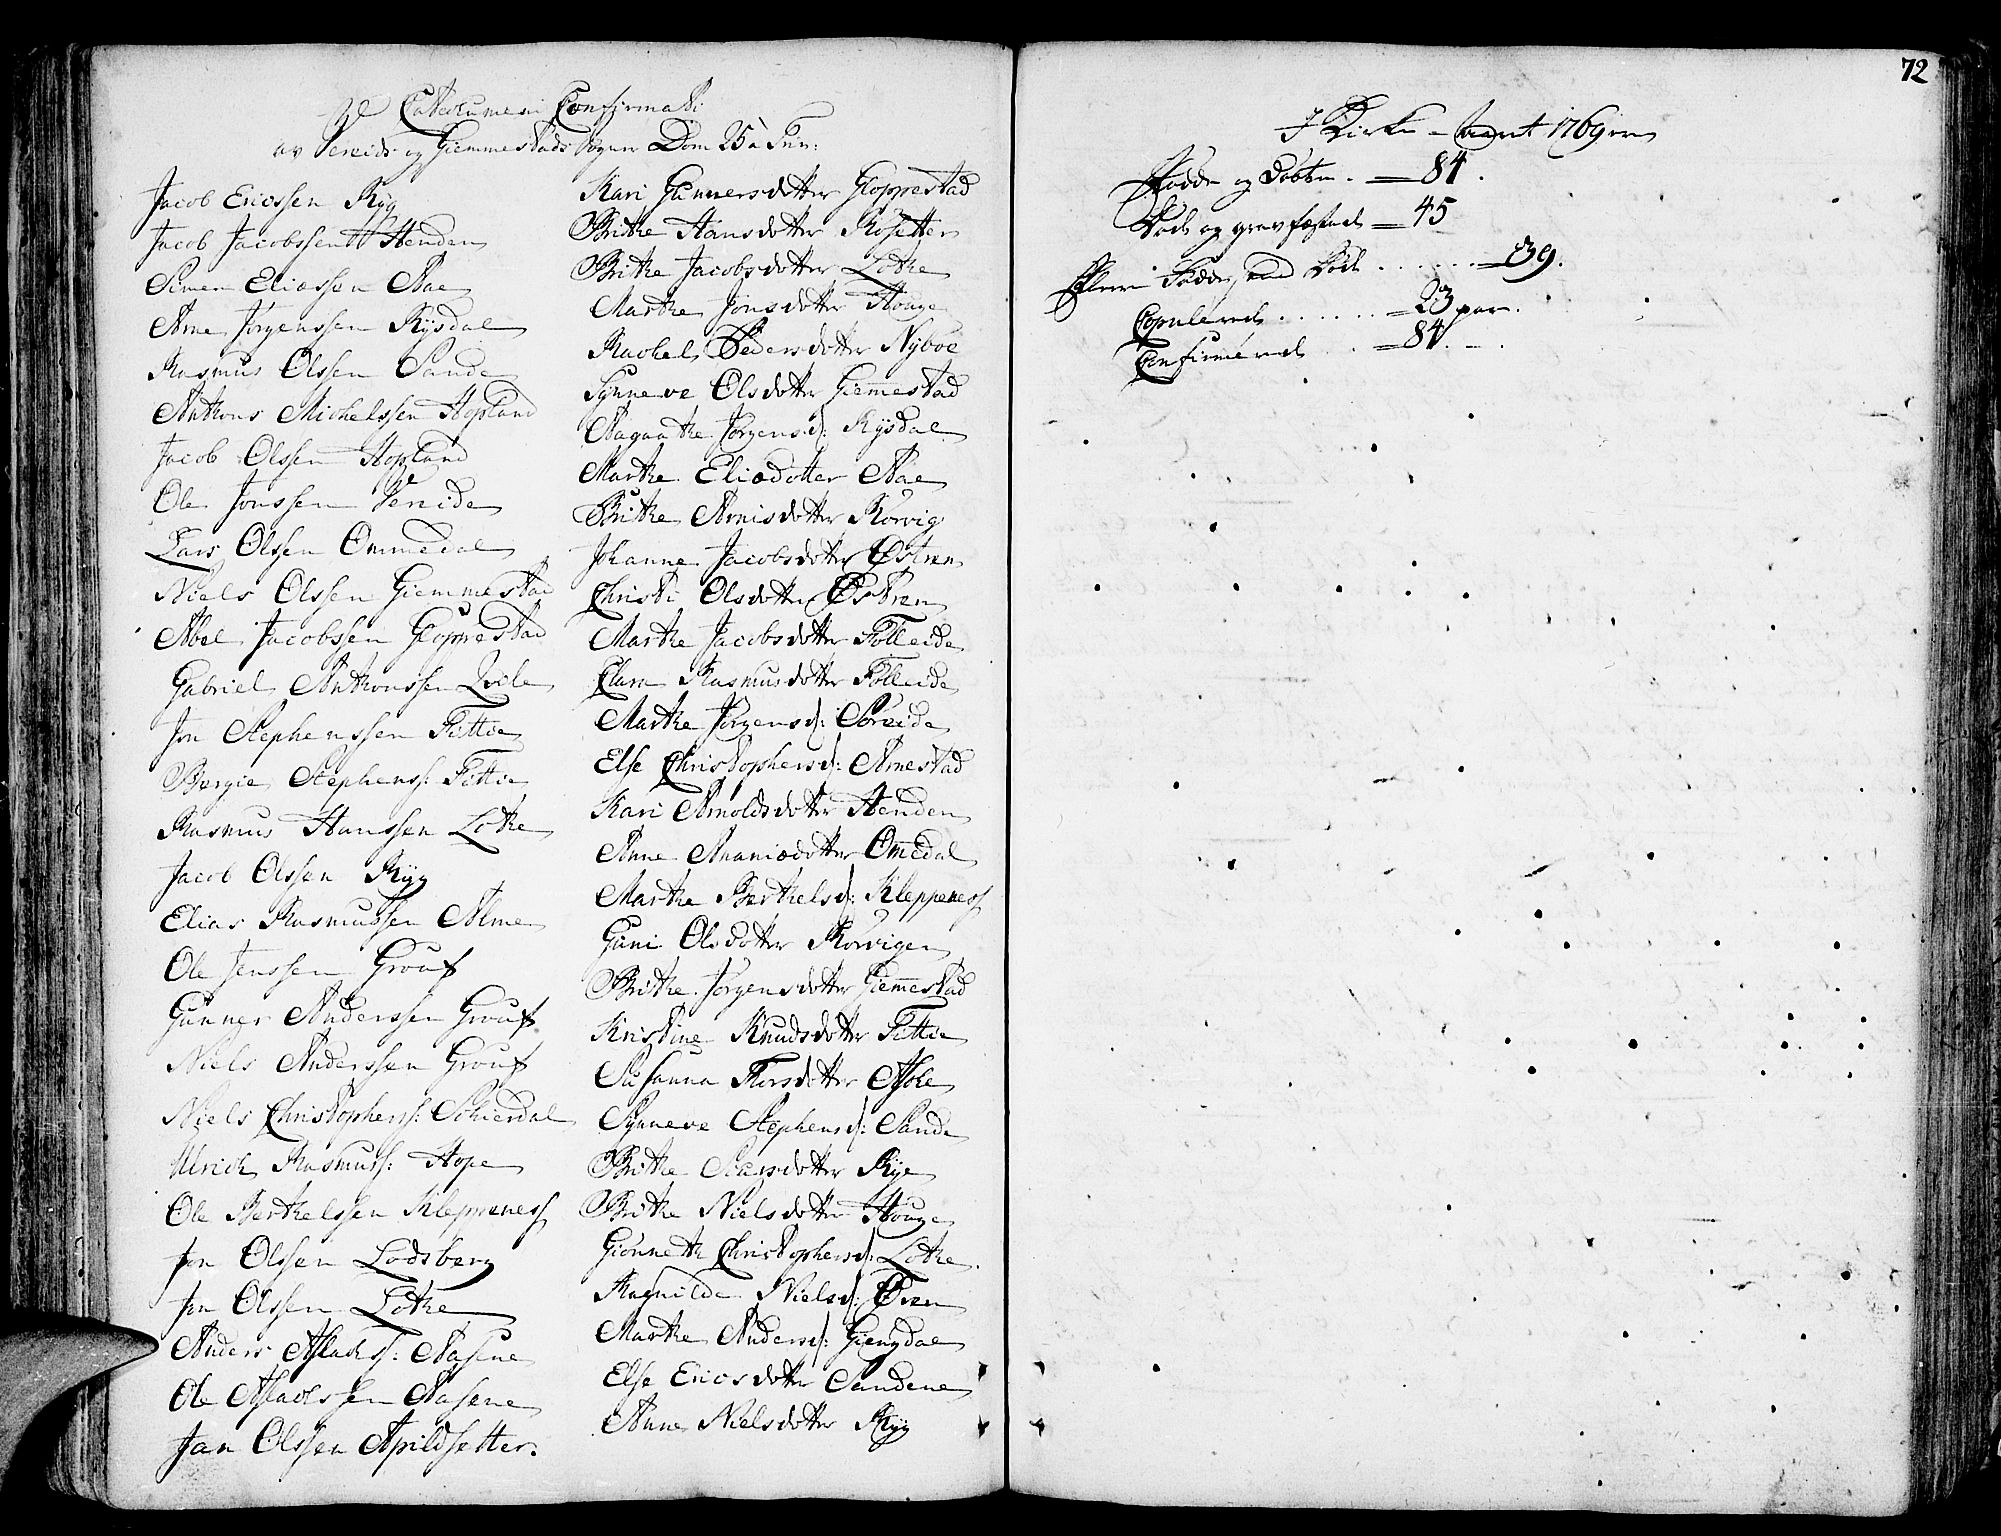 Catechumeni Confirmati
av Vereids og Giemmestads Sogner Dom 25 à Trin:
Jacob Ericssen Ryg
Jacob Jacobssen Henden
Simen Eliassen Aae
Arne Jörgenssen Rysdal
Rasmus Olssen Sande
Anthons Michelssen Hopland
Jacob Olssen Hopland
Ole Jonssen Vereide
Lars Olssen Ommedal
Niels Olssen Giemmestad
Abel Jacobssen Gloppestad
Gabriel Anthonssen Qvile
Jon Stephenssen Fittie
Bergie Stephenss: Fittie
Rasmus Hanssen Lothe
Jacob Olssen Ryg
Elias Rasmussen Alme
Ole Jenssen Grouf
Gunner Anderssen Grouf
Niels Anderssen Grouf
Niels Christopherss: Schierdal
Ulrich Rasmuss: Hope
Ole Berthelssen Kleppeness
Jon Olssen Lodsberg
Jon Olssen Lothe
Anders Aslachs: Aasene
Ole Aslachssen Aasene
Jan Olssen Apildsetter.
Kari Gunnersdotter Gloppestad
Brithe Hansdotter Rosetter
Brithe Jacobsdotter Lothe
Marthe Jonsdotter Houge
Rachel Pedersdotter Nyboe
Synneve Olsdotter Giemestad
Aagaathe Jörgensd: Rysdal
Marthe Eliædotter Aae
Brithe Arnisdotter Rörvig
Johanne Jacobsdotter Østren
Christi Olsdotter Østren
Marthe Jacobsdotter Folleide
Clara Rasmusdotter Folleide
Marthe Jörgensd: Soreide
Else Christophersd: Arnestad
Kari Arnoldsdotter Henden
Anne Ananiædotter Omedal
Marthe Berthelsd: Kleppeness
Guni Olsdotter Rörvigen
Brithe Jörgensdotter Giemestad
Kristine Knudsdotter Fittie
Susanna Thorsdotter Aske
Synneve Stephensd: Sande
Brithe Siursdotter Rye
Brithe Nielsdotter Houge
Giönneth Christophersd: Lothe.
Ragnilde Nielsd: Øren
Marthe Andersd: Giengdal
Else Ericsdotter Sandene
Anne Nielsdotter Ryg
72
I Kirke-Aaret 1769 ere
Födde og Döbte . = 84.
Döde og gravfæstede = 45
Fleere Födde end Döde . . . . . = 39.
Copulerede . . . . . . = 23 par.
Confirmerede . . = 84. - .